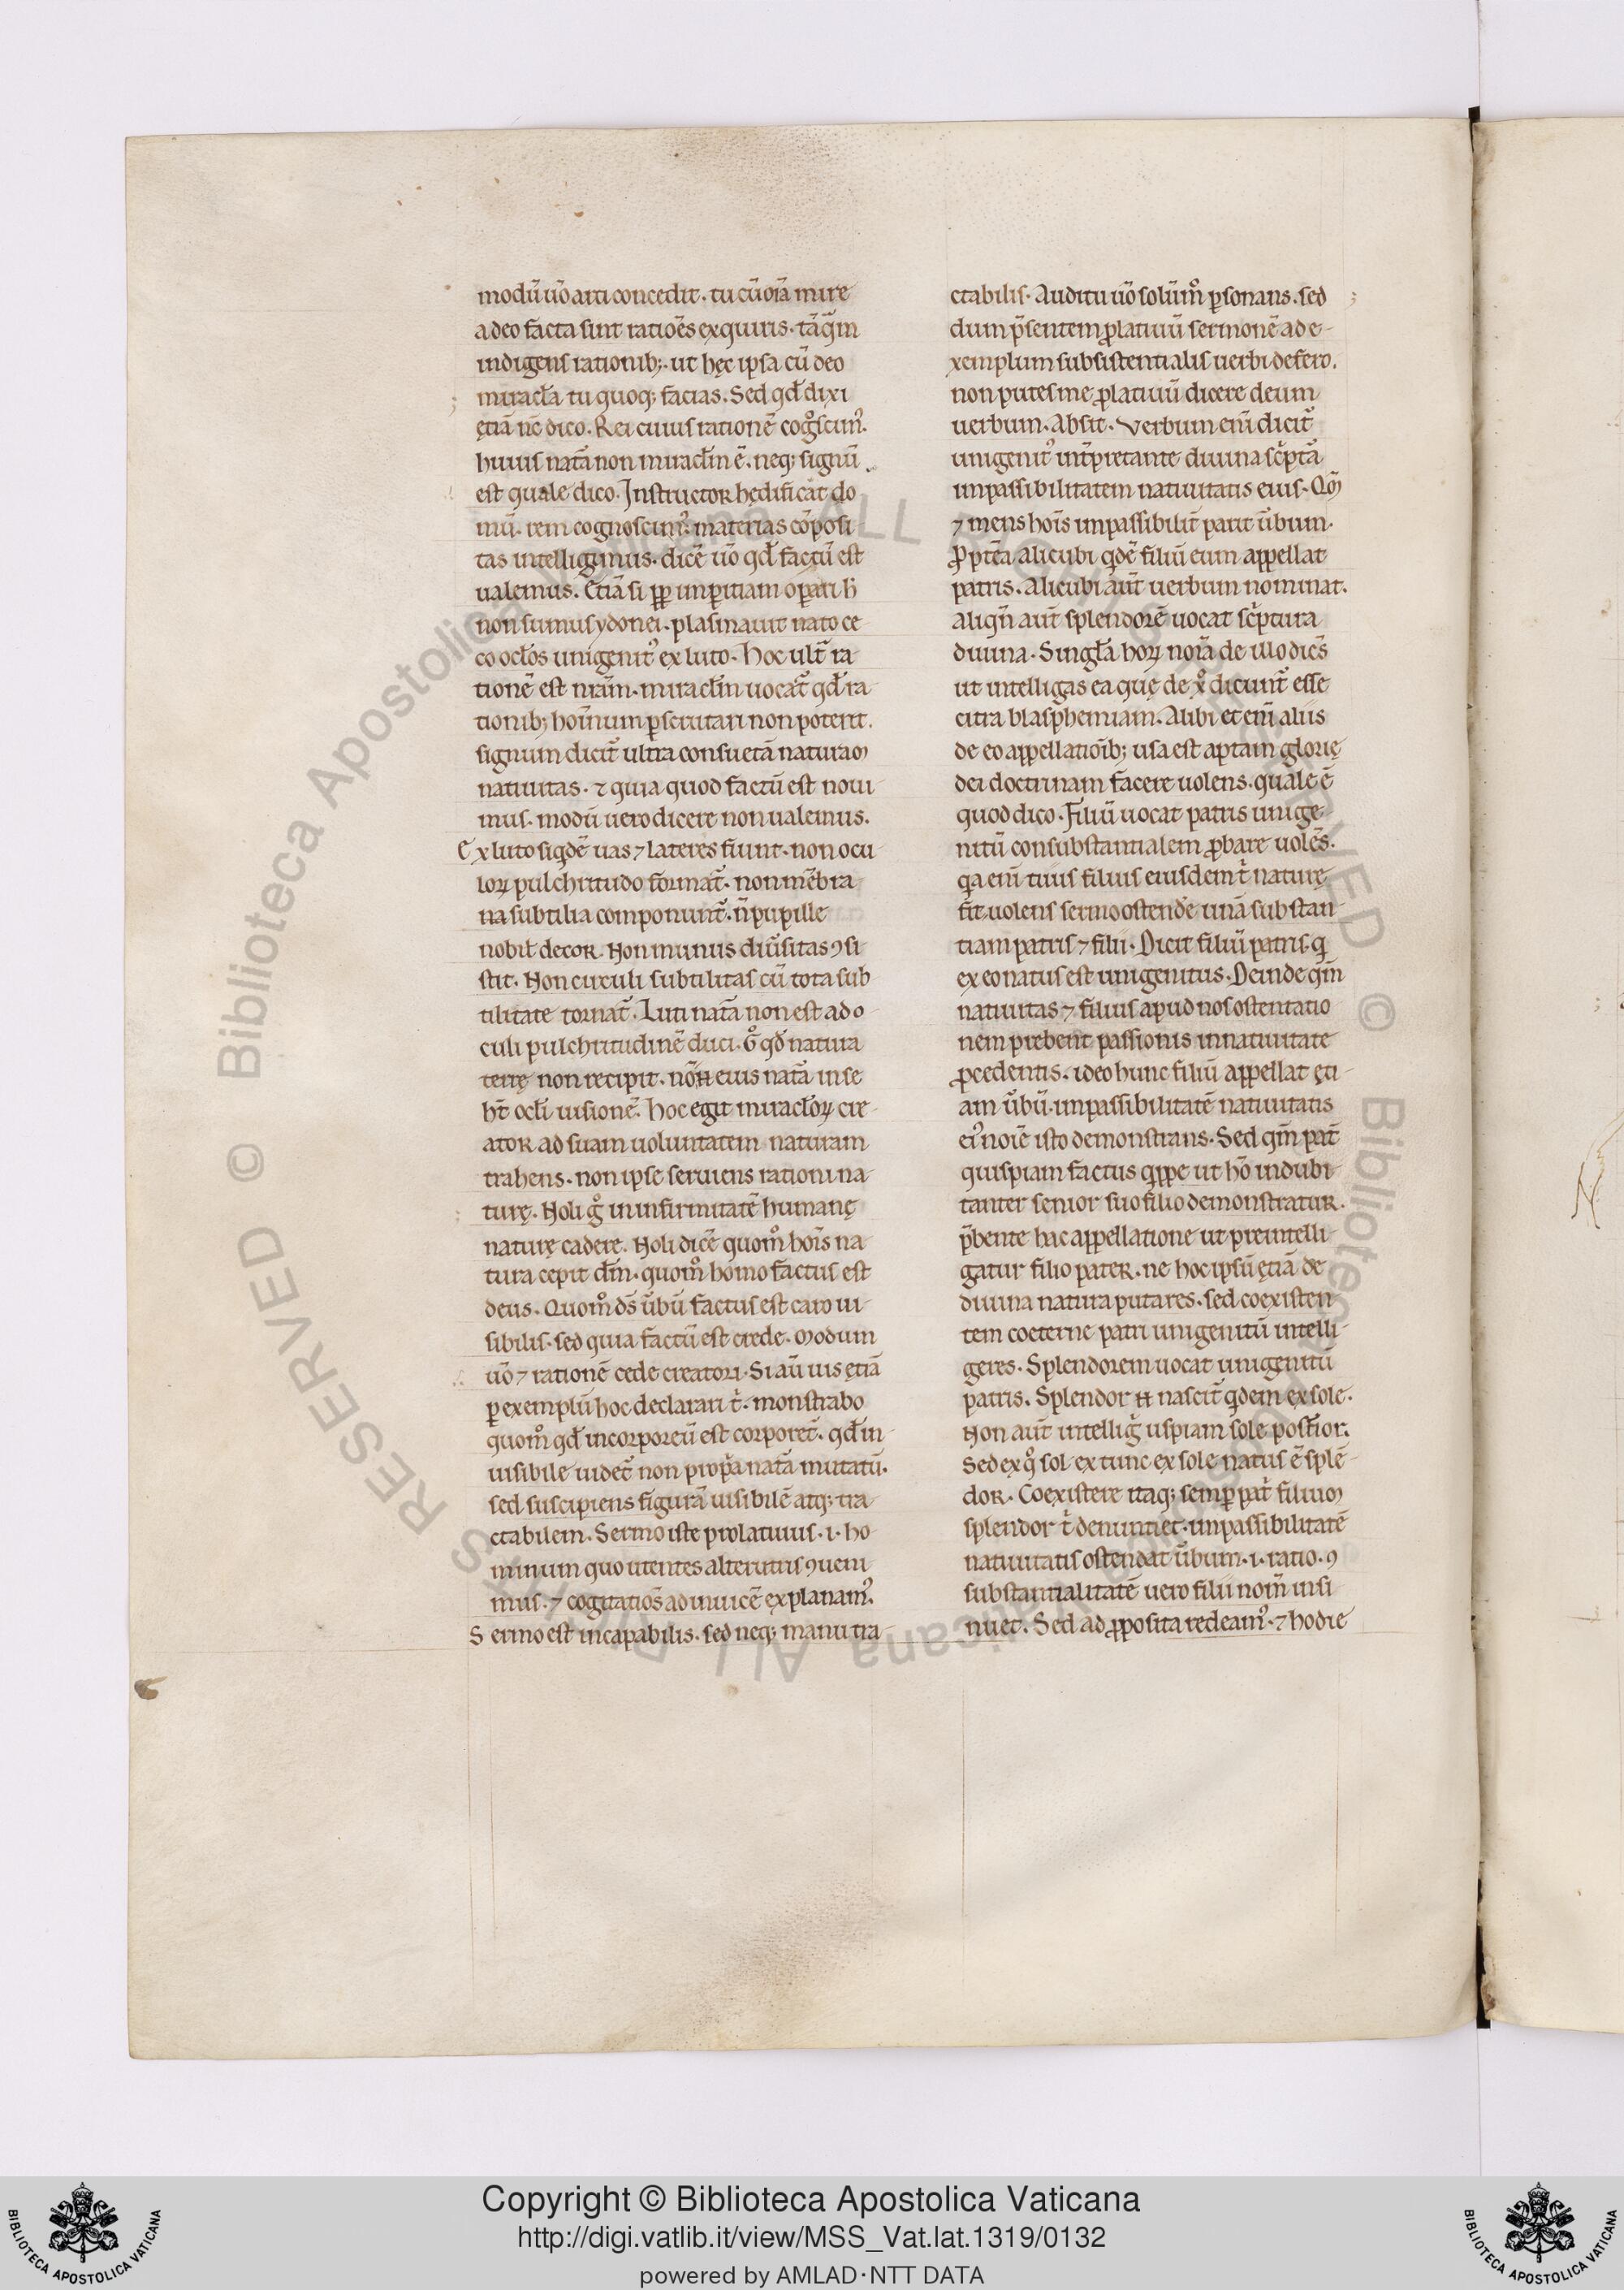 modū ũo arti concedit. tu cū oīa mire
adeo facta sint ratiōes exquiris. tāq̄m
indigens rationib;. ut hęc ipsa cū deo
miracl̄a tu quoq; facias. Sed qd̄ dixi
ętiā nc̄ dico. Rei cuius rationē cogͦscim᷒.
huius nat̄a non miracl̄m ē. neq; signū
est quale dico. Instructor hędificat do
mū. rem cognoscim᷒. materias cōposi
tas intelligimus. dicē ũo qd̄ factū est
ualemus. Etiā si ꝓp inꝑitiam oꝑari h̄
non sumus ydonei. plasmauit nato ce
co ocl̄os unigenit᷒ ex luto. Hoc ult̄ ra
tionē est nr̄am. miracl̄m uocat᷑ qd̄ ra
tionib; hom̄inum ꝑscrutari non poterit.
signum dicit᷑ ultra consuetā naturam
natiuitas. ⁊ quia quod factū est noui
mus. modū uero dicere non ualemus.
Ex luto siqdē uas ⁊ lateres fiunt. non ocu
loꝝ pulchritudo format᷑. non mēbra
na subtilia componunt᷑. n̄ pupille
nobil̄ decor. Non munus diũsitas ꝯsi
stit. Non circuli subtilitas cū tota sub
tilitate tornat᷑. Luti nat̄a non est ad o
culi pulchritudinē duci. Gͦ qd̄ natura
terrę non recipit. nō N̄ eius nat̄a in se
ht̄ ocl̄i uisionē. Hoc egit miracl̄oꝝ cre
ator ad suam uoluntatem naturam
trahens. non ipse seruiens rationi na
turę. Noli gͦ in infirmitatē humanę
naturę cadere. Noli dicē quom̊ hoīs na
tura cepit dm̄. quom̊ homo factus est
deus. Quom̊ ds̄ ũbū factus est caro ui
sibilis. sed quia factū est crede. Modum
ũo ⁊ rationē cede creatori. Si aū uis ętiā
ꝑ exemplū hoc declarari t̓. monstrabo
quom̊ qd̄ incorporeū est corporet᷑. qd̄ in
uisibile uidet᷑ non prop̓a nat̄a mutatū.
sed suscipiens figurā uisibilē atq; tra
ctabilem. Sermo iste prolatiuus .i. ho
minum quo utentes alterutris ꝯueni
mus. ⁊ cogitatiōs ad inuicē explanam᷒.
Sermo est incapabilis. sed neq; manu tra
ctabilis. Auditu ũo solūm̊ ꝑsonans. sed
dum p̄sentem ꝓlatiuū sermonē ad e
xemplum subsistentialis uerbi defero.
non putes me ꝓlatiuū dicere deum
uerbum. Absit. Verbum eīm dicit᷑
unigenit᷒ int̄pretante diuina sc̓pta
inpassibilitatem natiuitatis eius. Qm̄
⁊ mens hoīs inpassibilit̄ parit ũbum.
Proptēa alicubi qdē filiū eum appellat
patris. Alicubi aut̄ uerbum nominat.
aliqn̄ aut̄ splendorē uocat sc̓ptura
diuina. Singl̄a hoꝝ noīa de illo diēs
ut intelligas ea quę de xͦ dicunt᷑ esse
citra blasphemiam. Alibi et eīm aliis
de eo appellatiōib; usa est aptam glorię
dei doctrinam facere uolens. quale ē
quod dico. Filiū uocat patris unige
nitū consubstantialem ꝓbare uolēs.
q̓a eīm tuus filius eiusdem t̓ naturę
fit. uolens sermo ostendē unā substan
tiam patris ⁊ filii. Dicit filiū patris. q̓
ex eo natus est unigenitus. Deinde qm̄
natiuitas ⁊ filius apud nos ostentatio
nem prebent passionis in natiuitate
ꝓcedentis. ideo hunc filiū appellat ęti
am ũbū. inpassibilitatē natiuitatis
ei᷒ noīe isto demonstrans. Sed qm̄ pat̄
quispiam factus q̓ppe ut hō indubi
tanter senior suo filio demonstratur.
p̄bente hac appellatione ut preintelli
gatur filio pater. ne hoc ipsū ętiā de
diuina natura putares. sed coexisten
tem coeterne patri unigenitū intelli
geres. Splendorem uocat unigenitū
patris. Splendor N̄ nascit᷑ qdem ex sole.
Non aut̄ intelligit᷑ uspiam sole post̄ior.
Sed ex qͦ sol ex tunc ex sole natus ē splē
dor. Coexistere itaq; semꝑ pat̓ filium
splendor t̓ denuntiet. inpassibilitatē
natiuitatis ostendat ũbum .i. ratio. ꝯ
substantialitatē uero filii nom̄ insi
nuet. Sed ad ꝓposita redeam᷒. ⁊ hodie
Copyright © Biblioteca Apostolica Vaticana
http://digi.vatlib.it/view/MSS_Vat.lat.1319/0132
powered by AMLAD·NTT DATA